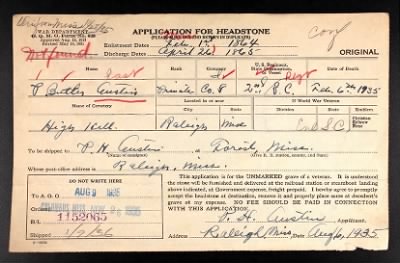 WAR DEPARTMENT
O. Q. M. G. Form No. 623
APPLICATION FOR HEADSTONE
Conf
Enlistment Dates Feb. 1864
Discharge Dates April 26 1865
ORIGINAL
Name
Rank
Company
State
Date of Death
P. Butler Austin
Private Co. 8
2nd S.C.
Feb. 6th, 1935
Name of Cemetery
Located in or near
City
State
If World War Veteran
High Hill
Raleigh
Miss
To be shipped to P. H. Austin
(Name of consignee)
at
Miss.
Whose post-office address is Raleigh, Miss.
DO NOT WRITE HERE
This application is for the UNMARKED grave of a veteran. It is understood the
stone will be furnished and delivered at the railroad station or steamboat landing
above indicated, at Government expense, freight prepaid. I hereby agree to promptly
accept the headstone at destination, remove it and properly place same at decedent's
grave at my expense. NO FEE SHOULD BE PAID IN CONNECTION
WITH THIS APPLICATION.
AUG 9 1935
1152065
P. H. Austin Applicant.
Address Raleigh Miss Aug 6, 1935